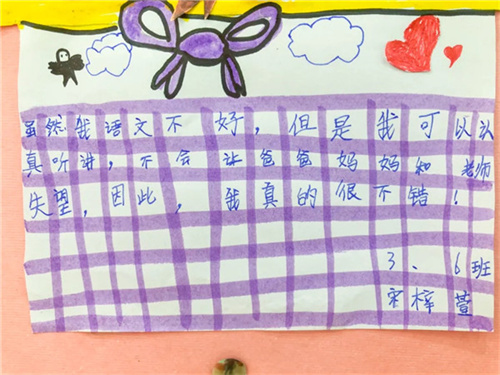 虽然我语文不好，但是我可以认
真听讲，不会让爸爸妈妈和老师
失望，因此，我真的很不错！
3、6班
宋梓萱